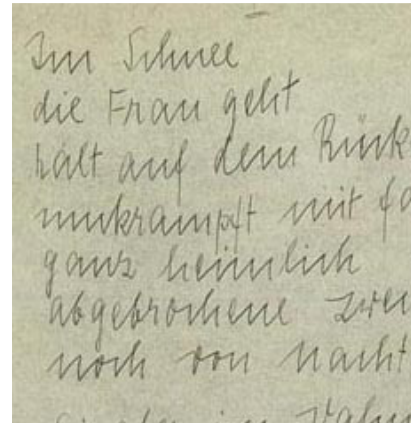 Im Schnee
die Frau geht
hält auf dem Rück
umkrampft mit fa
ganz heimlich
abgebrochene zwei
noch von nacht